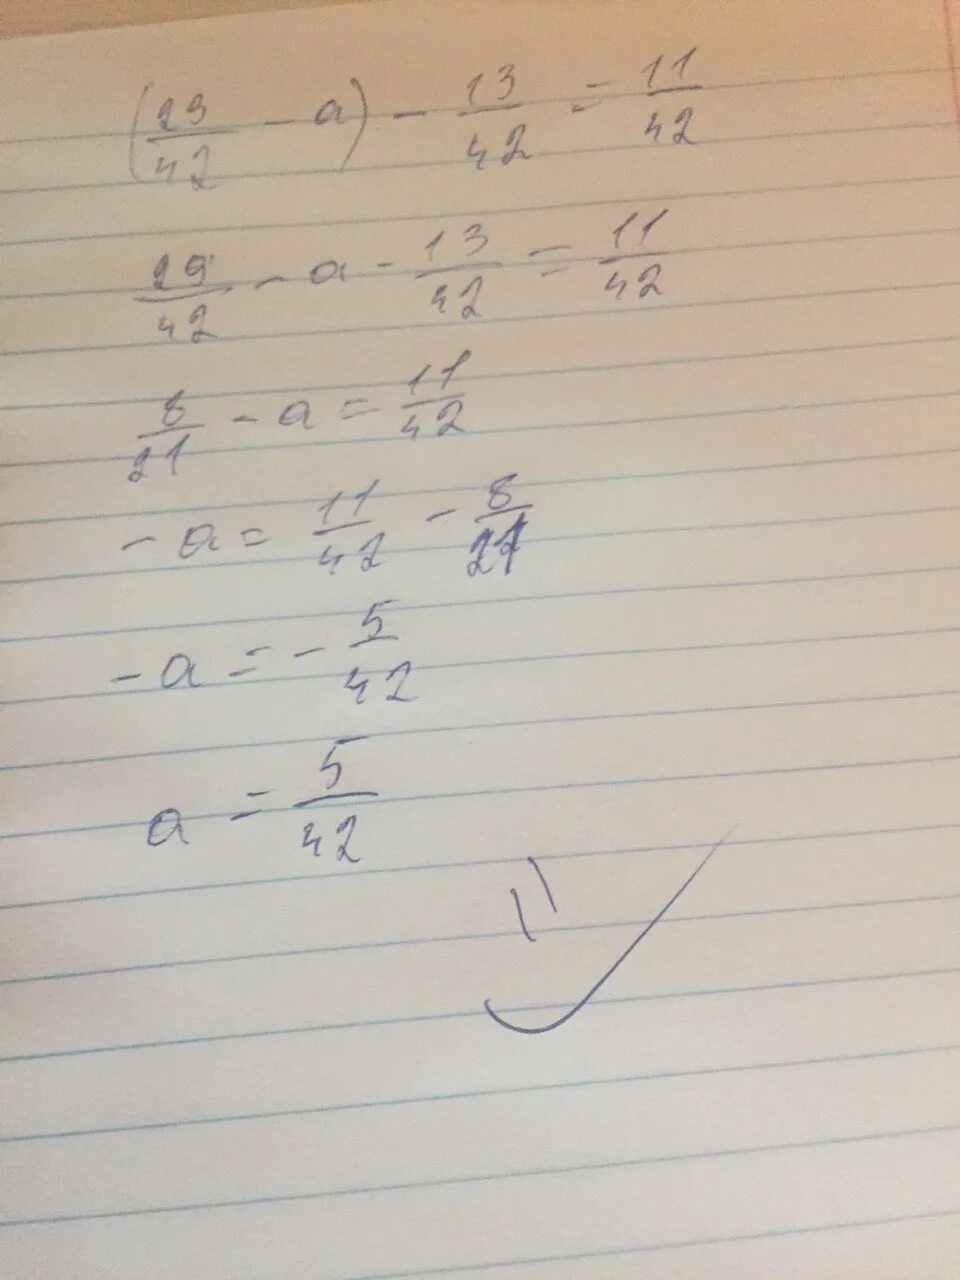 (29/42 - a) - 13/42 = 11/42
29/42 - a - 13/42 = 11/42
8/21 - a = 11/42
- a = 11/42 - 8/21
- a = - 5/42
a = 5/42